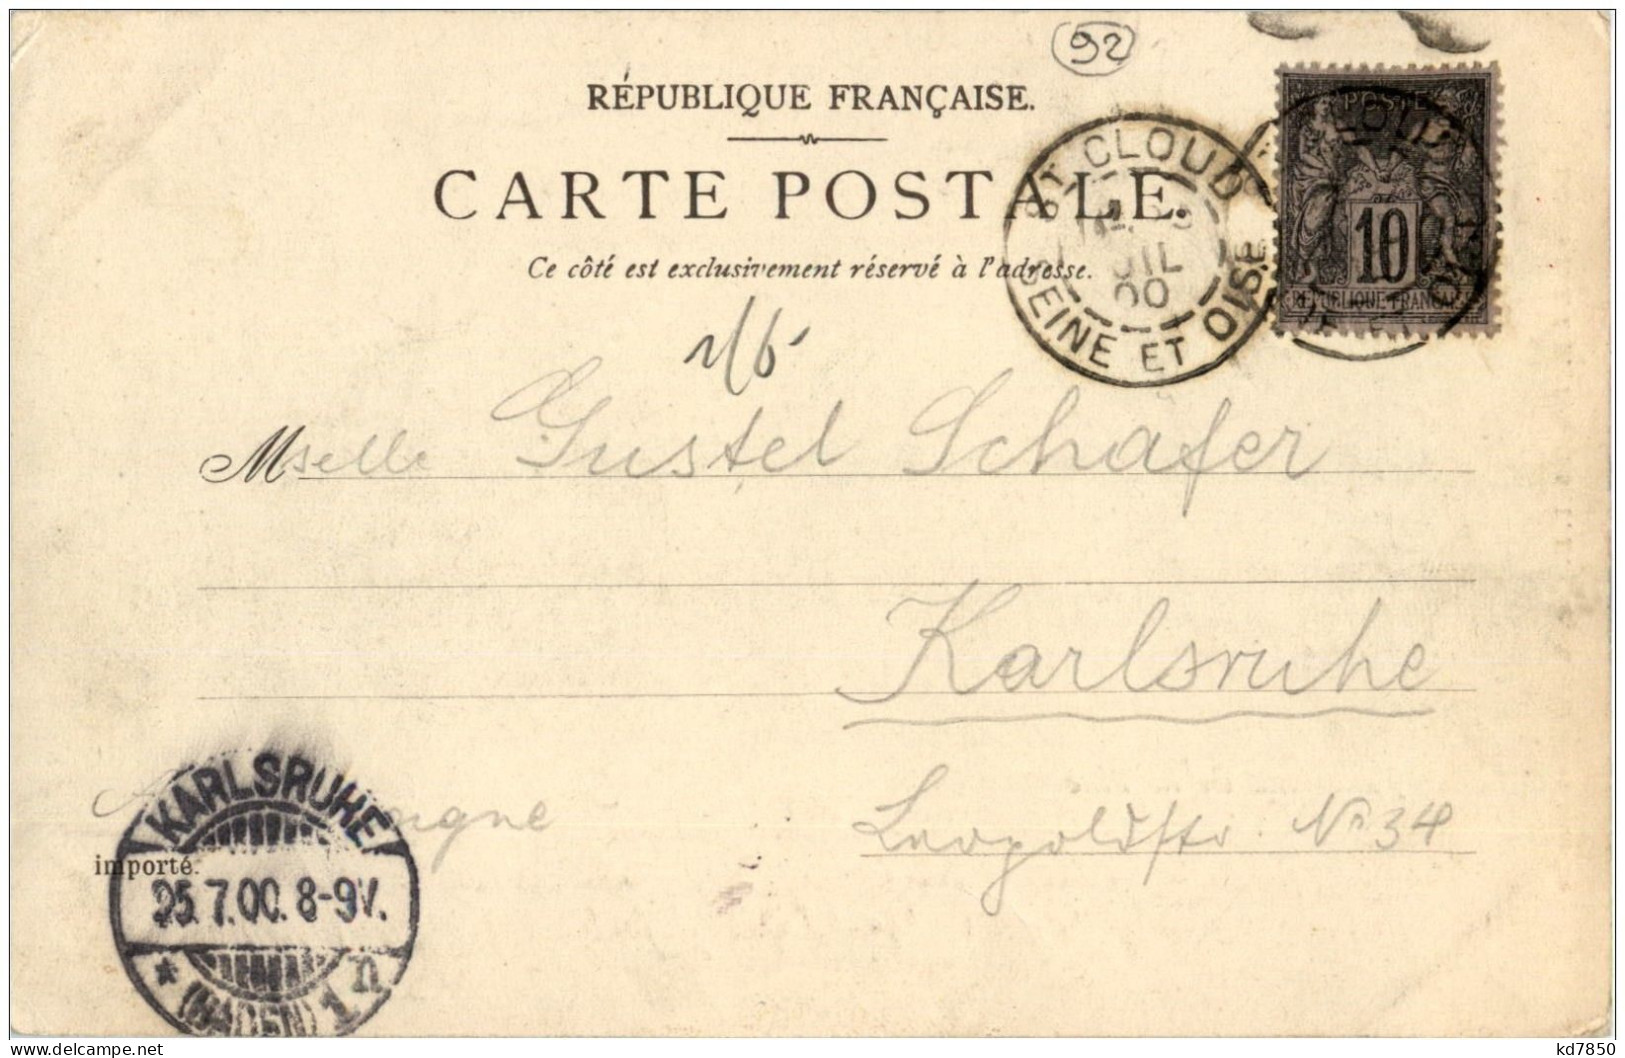 92
RÉPUBLIQUE FRANÇAISE.
CARTE POSTALE.
Ce côté est exclusivement réservé à l'adresse.
ST CLOUD
JUIL
00
SEINE ET OISE
POSTES
10
REPUBLIQUE FRANÇAISE
Mselle Gustel Schäfer
Karlsruhe
Leopoldstr. No 34
importé.
KARLSRUHE
25.7.00.8-9V.
(BADEN) 1 n
delcampe.net
kd7850